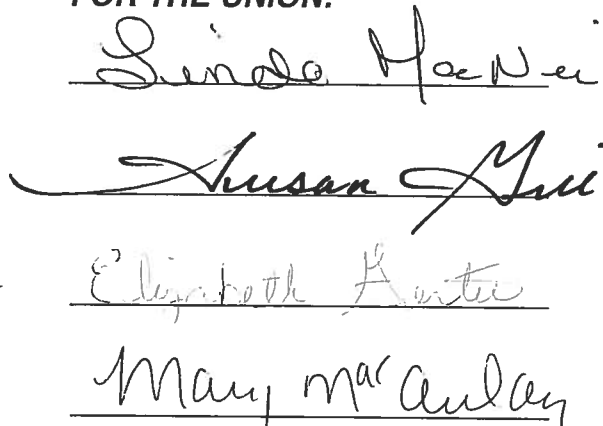 FOR THE UNION:
Linda MacNei
Susan Gill
Elizabeth
Mary MacAulay